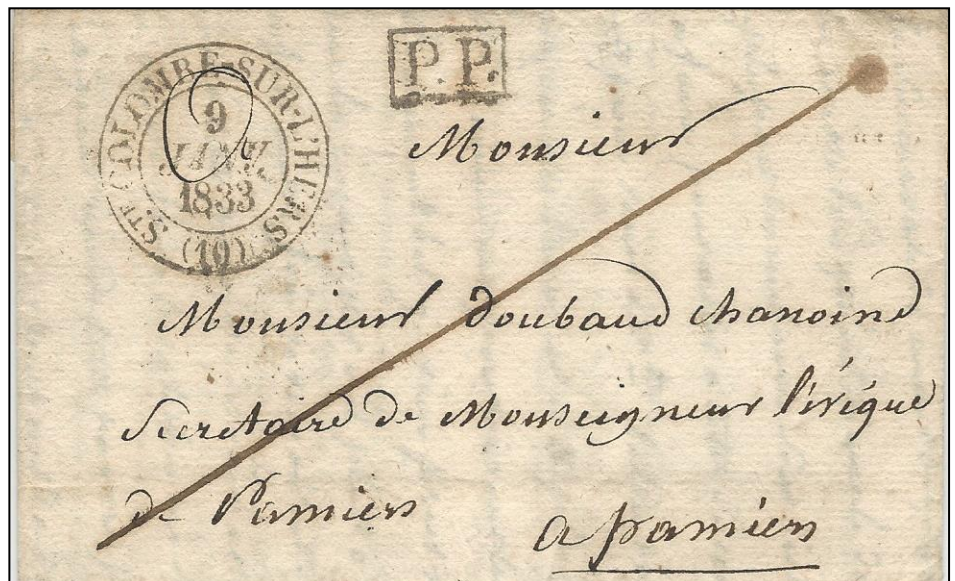 Ste COLOMBE-SUR-L'HERS
9
JANV.
1833
(10)
P.P.
Monsieur
Monsieur Doubaud chanoine
Secretaire de Monseigneur l'évêque
de Pamiers
a pamiers